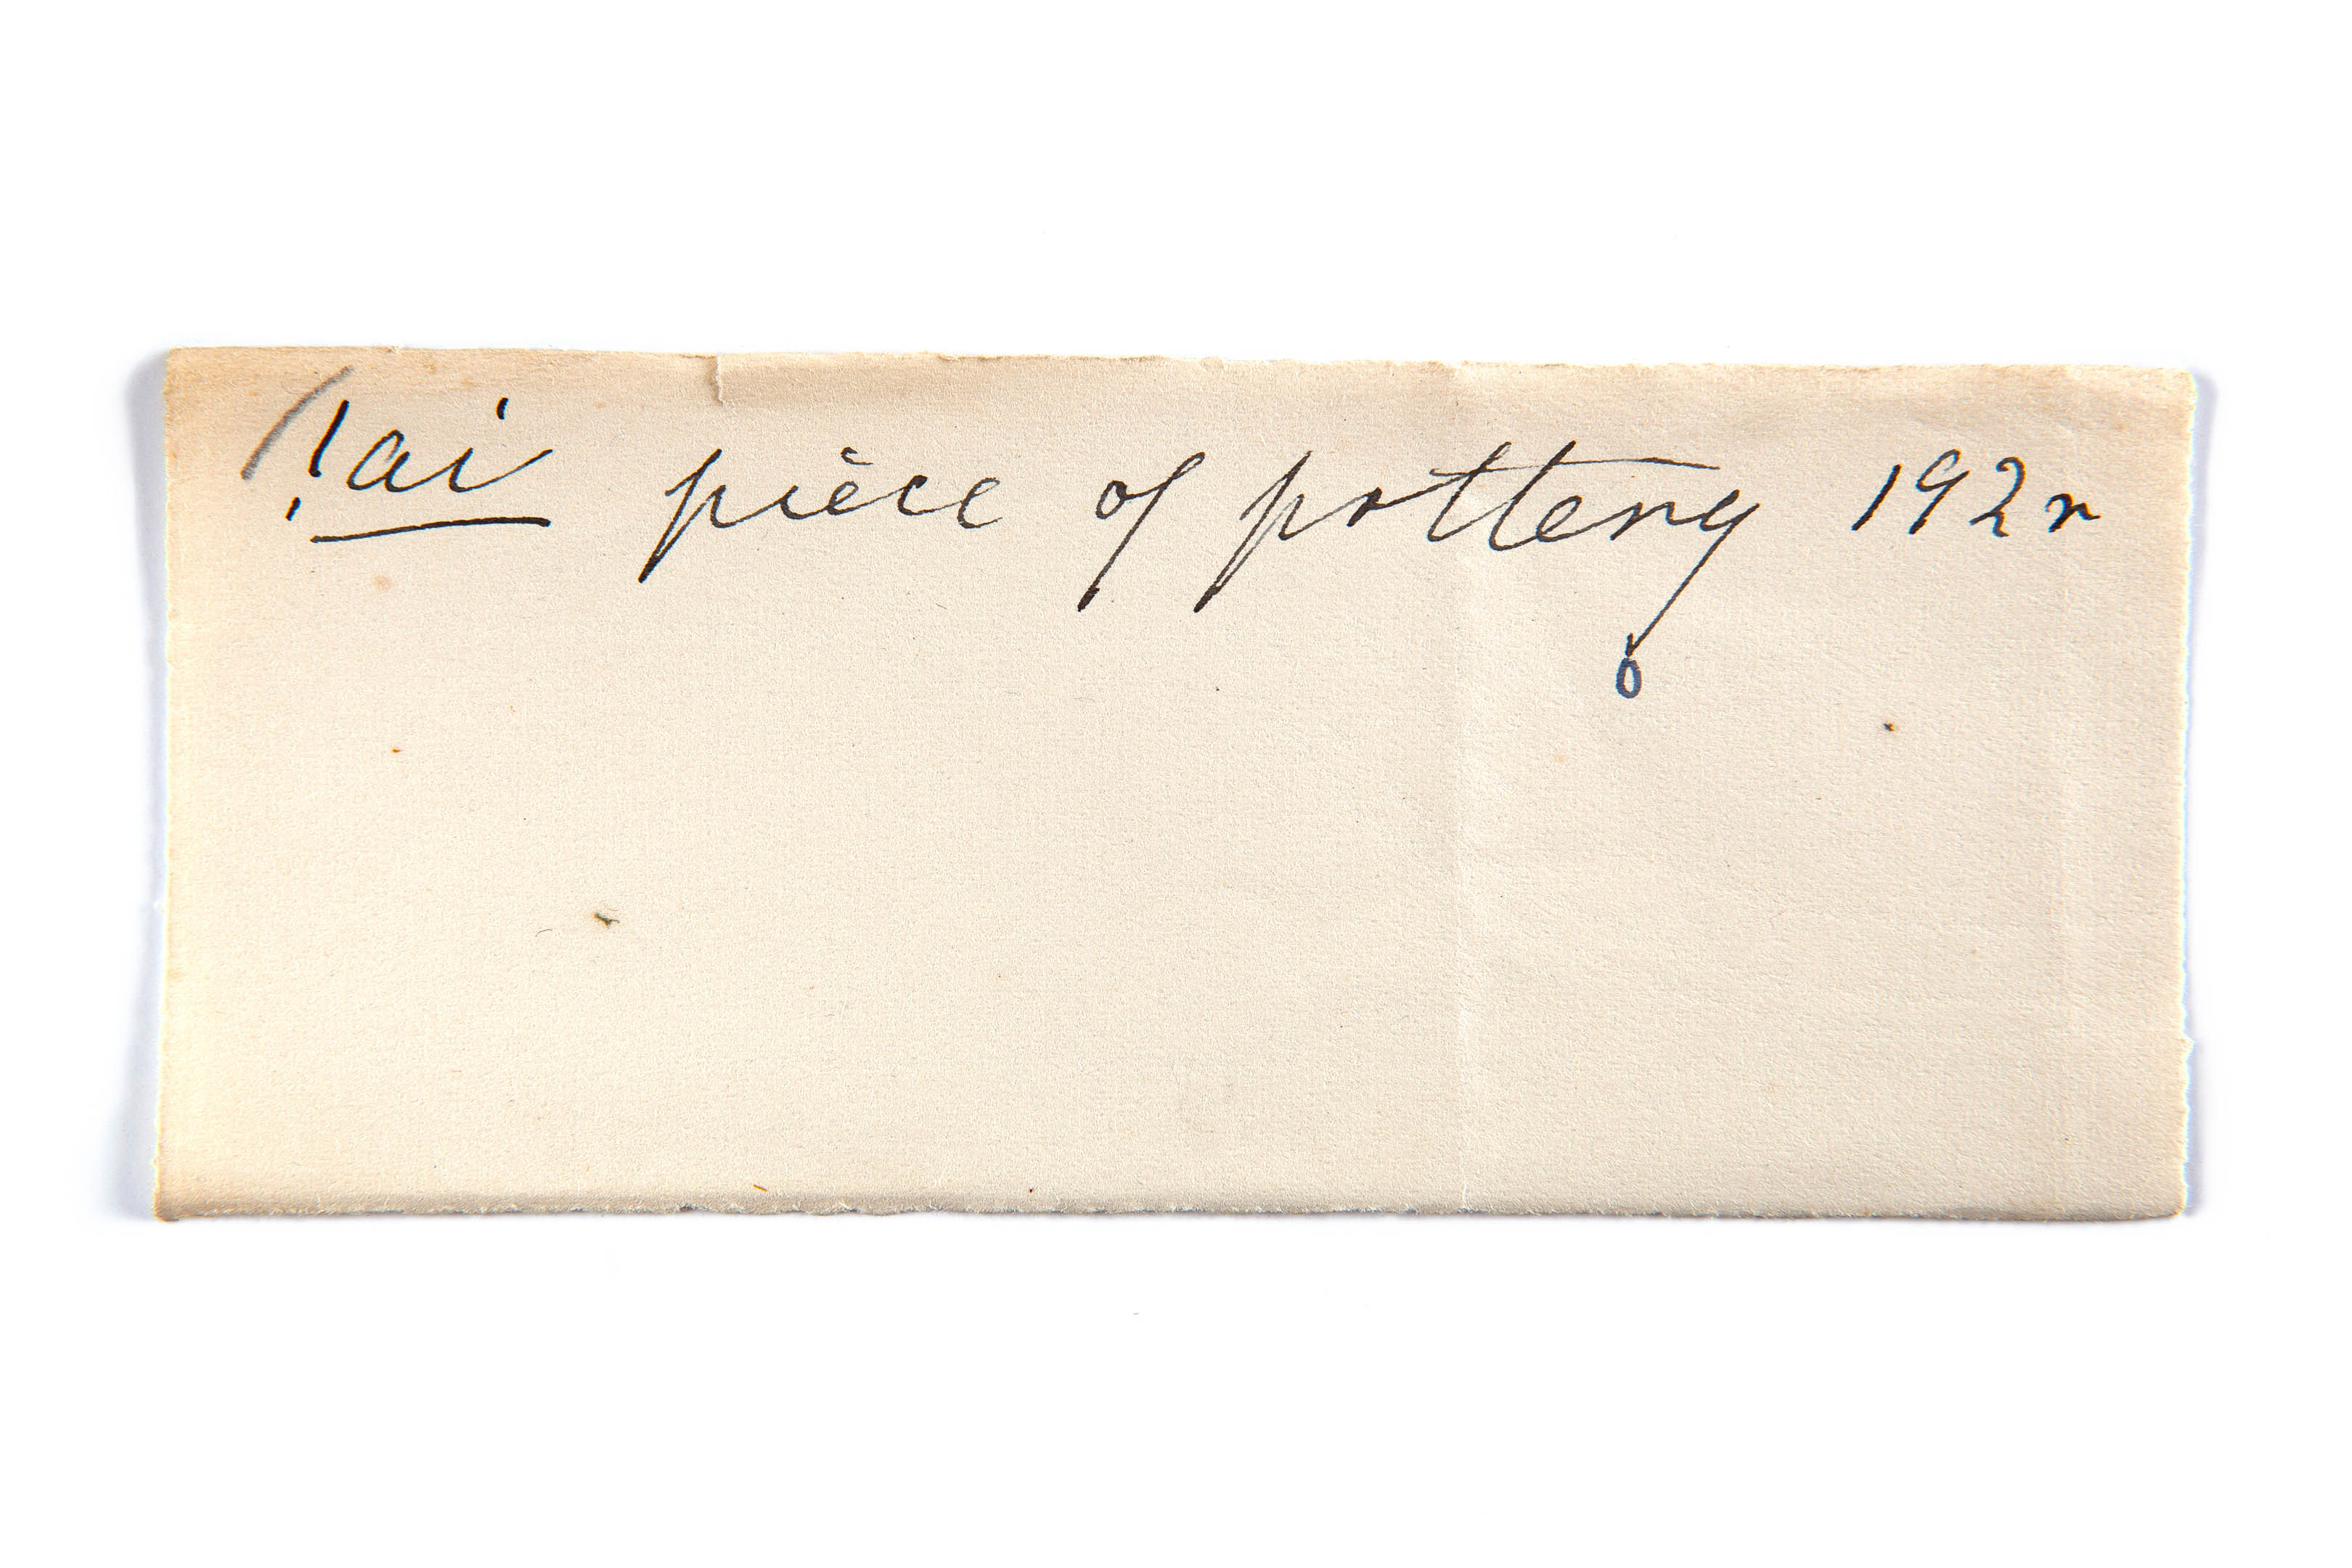 !ai piece of pottery 192r